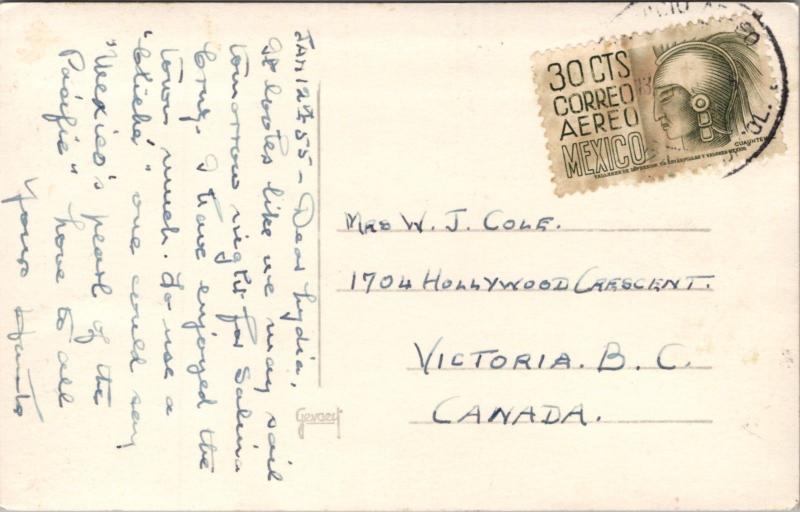 JAN 12th 55 - Dear Lydia,
It lookes like we may sail
tomorrow night for Salina
Cruz. I have enjoyed the
town much. To use a
"cliché" one could say
"Mexico's pearl of the
Pacific" Love to all
Yours
30 CTS
CORREO
AEREO
MEXICO
CUAUHTEMOC
TALLERES DE IMPRESION DE ESTAMPILLAS Y VALORES MEXICO
MRS W. J. COLE.
1704 HOLLYWOOD CRESCENT.
VICTORIA. B. C.
CANADA.
Gevaert